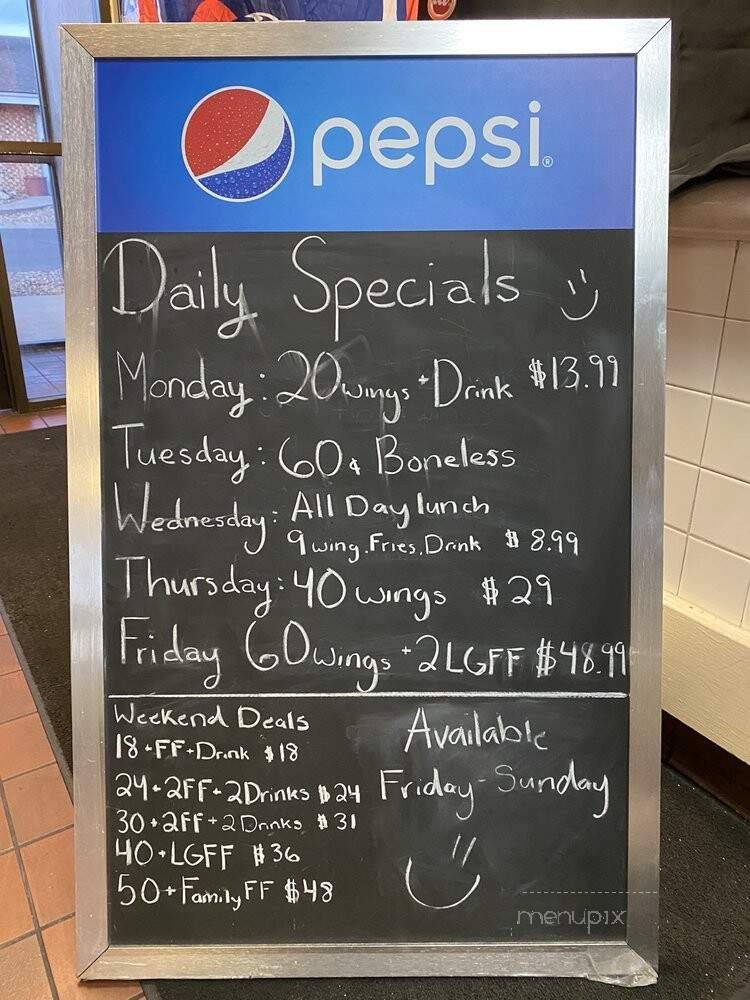 pepsi®
Daily Specials
Monday: 20 wings + Drink $13.99
Tuesday: 60¢ Boneless
Wednesday: All Day lunch
9 wing. Fries. Drink $ 8.99
Thursday: 40 wings $29
Friday 60 wings + 2 LGFF $48.99
Weekend Deals
18 + FF + Drink $18
24 + 2FF + 2 Drinks $24
30 + 2FF + 2 Drinks $31
40 + LGFF $36
50 + Family FF $48
Available
Friday - Sunday
menupix